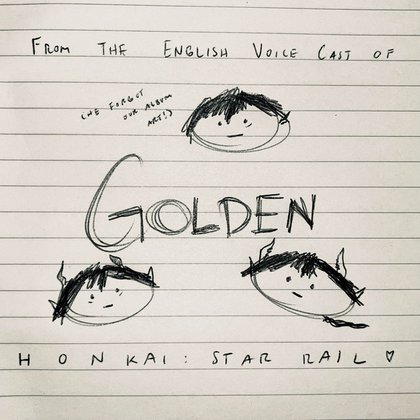 FROM THE ENGLISH VOICE CAST OF
(WE FORGOT
OUR ALBUM
ART!)
GOLDEN
HONKAI: STAR RAIL ♡